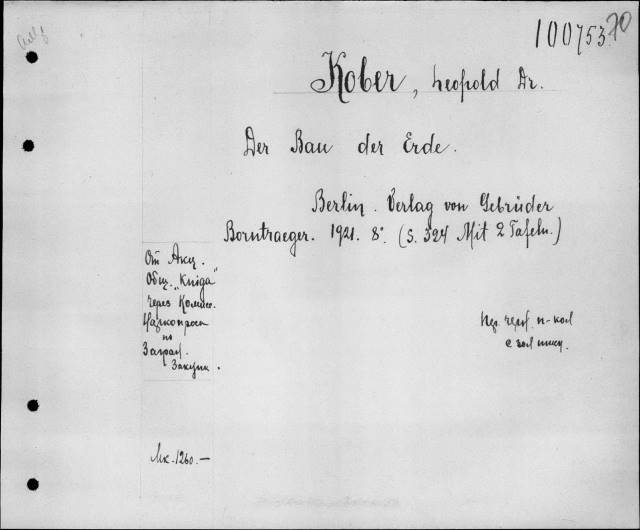 100753 70
Kober, Leopold Dr.
Der Bau der Erde.
Berlin. Verlag von Gebrüder
Borntraeger. 1921. 8° (S. 324 Mit 2 Tafeln.)
От Акц.
Общ. „Kniga"
через Комис.
Наркопроса
по
Заграл.
Закупк.
Пер. черн. п-кол
с зол тисн.
Мк. 1260.—